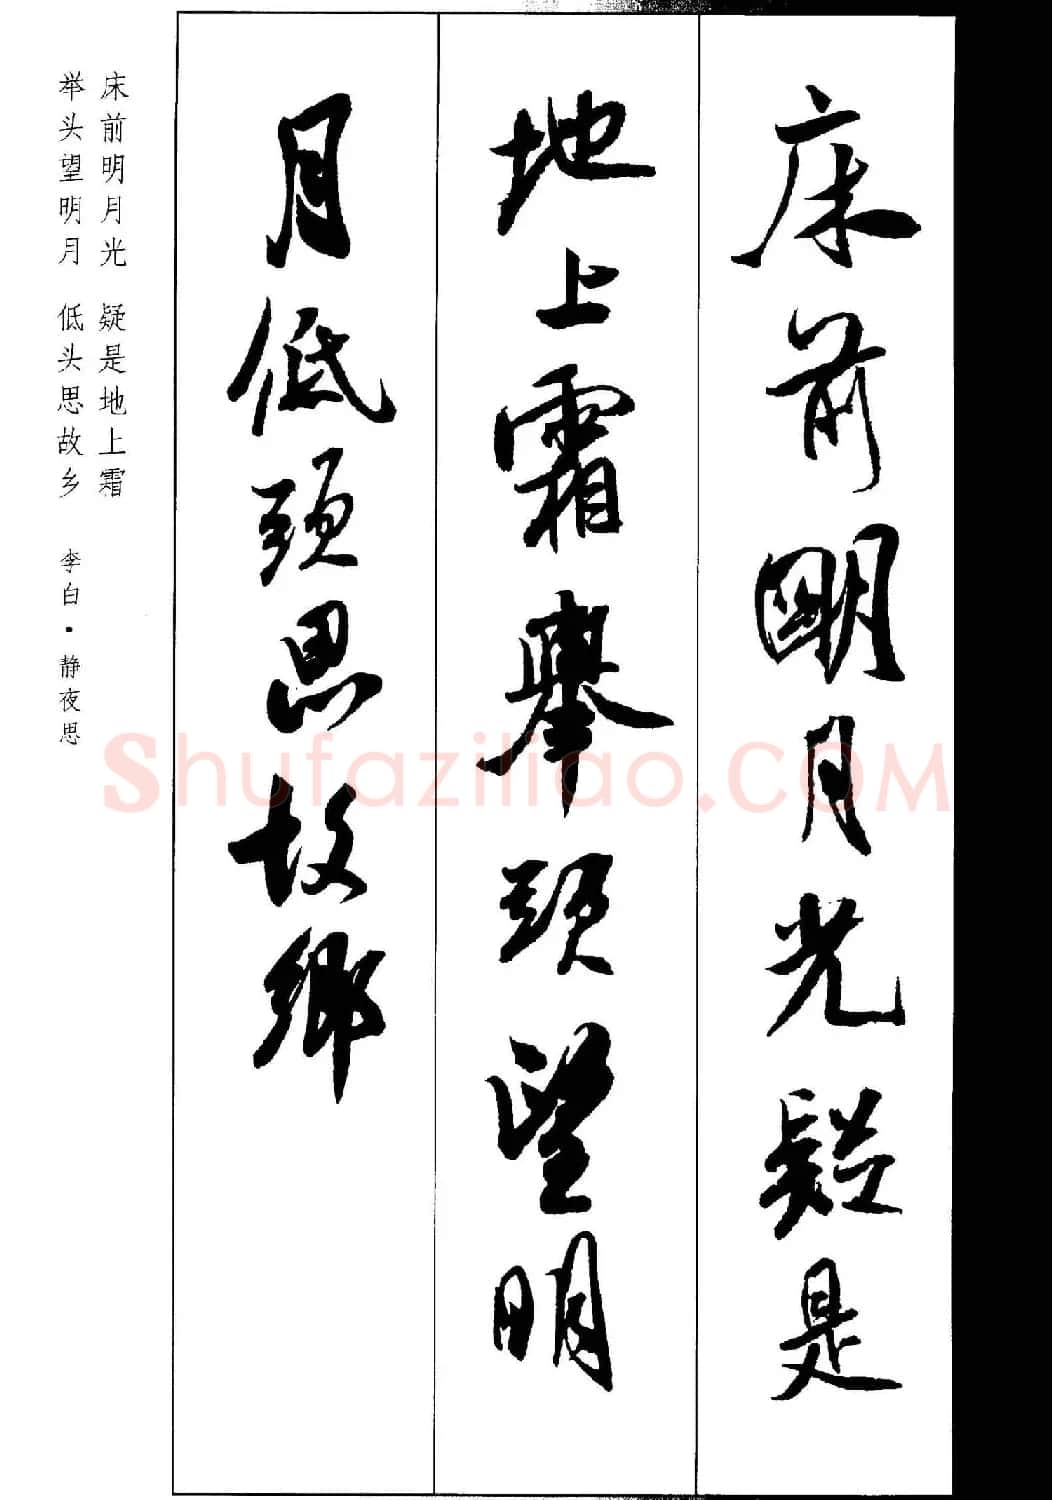 床前明月光疑是
地上霜舉頭望明
月低頭思故鄉
床前明月光 疑是地上霜
举头望明月 低头思故乡 李白·静夜思
Shufaziliao.COM